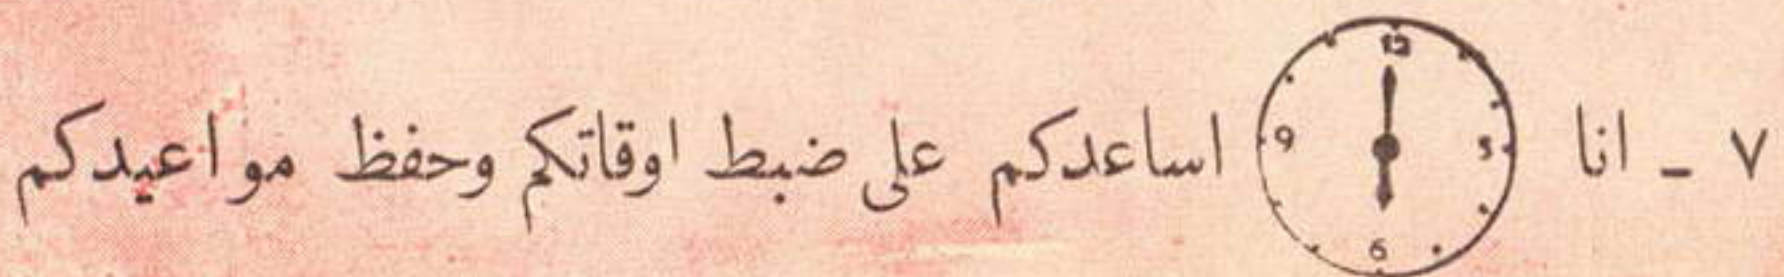 ٧ _ انا 12 9 3 6 اساعدكم على ضبط اوقاتكم وحفظ مواعيدكم